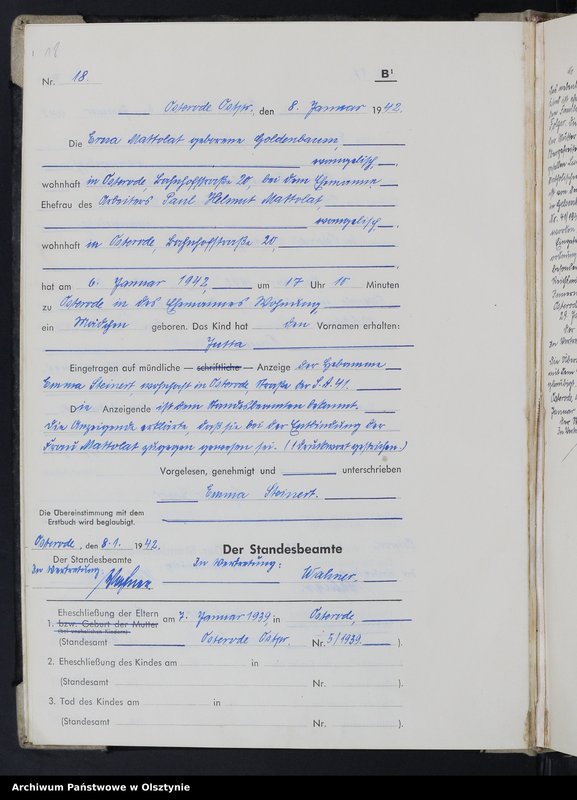 18
Nr. 18. B¹
Osterode Ostpr., den 8. Januar 1942.
Die Erna Mattolat geborene Goldenbaum,
evangelisch,
wohnhaft in Osterode, Bahnhofstraße 20, bei dem Ehemanne
Ehefrau des Arbeiters Paul Helmut Mattolat
evangelisch,
wohnhaft in Osterode, Bahnhofstraße 20,
hat am 6. Januar 1942, um 17 Uhr 10 Minuten
zu Osterode in des Ehemannes Wohnung
ein Mädchen geboren. Das Kind hat den Vornamen erhalten:
Jutta
Eingetragen auf mündliche — schriftliche — Anzeige der Hebamme
Emma Steinert wohnhaft in Osterode Straße der S.A. 41.
Die Anzeigende ist dem Standesbeamten bekannt.
Die Anzeigende erklärte daß sie bei der Entbindung der
Frau Mattolat zugegen gewesen sei. (1 Druckwort gestrichen.)
Vorgelesen, genehmigt und unterschrieben
Emma Steinert.
Die Übereinstimmung mit dem
Erstbuch wird beglaubigt.
Osterode, den 8.1. 1942.
Der Standesbeamte
Der Standesbeamte
In Vertretung:
In Vertretung:
Wahner
1. Eheschließung der Eltern
bzw. Geburt der Mutter
(bei unehelichen Kindern)
am 7. Januar 1939 in Osterode,
(Standesamt Osterode Ostpr. Nr. 5/1939. ).
2. Eheschließung des Kindes am in
(Standesamt Nr. ).
3. Tod des Kindes am in
(Standesamt Nr. ).
Archiwum Państwowe w Olsztynie